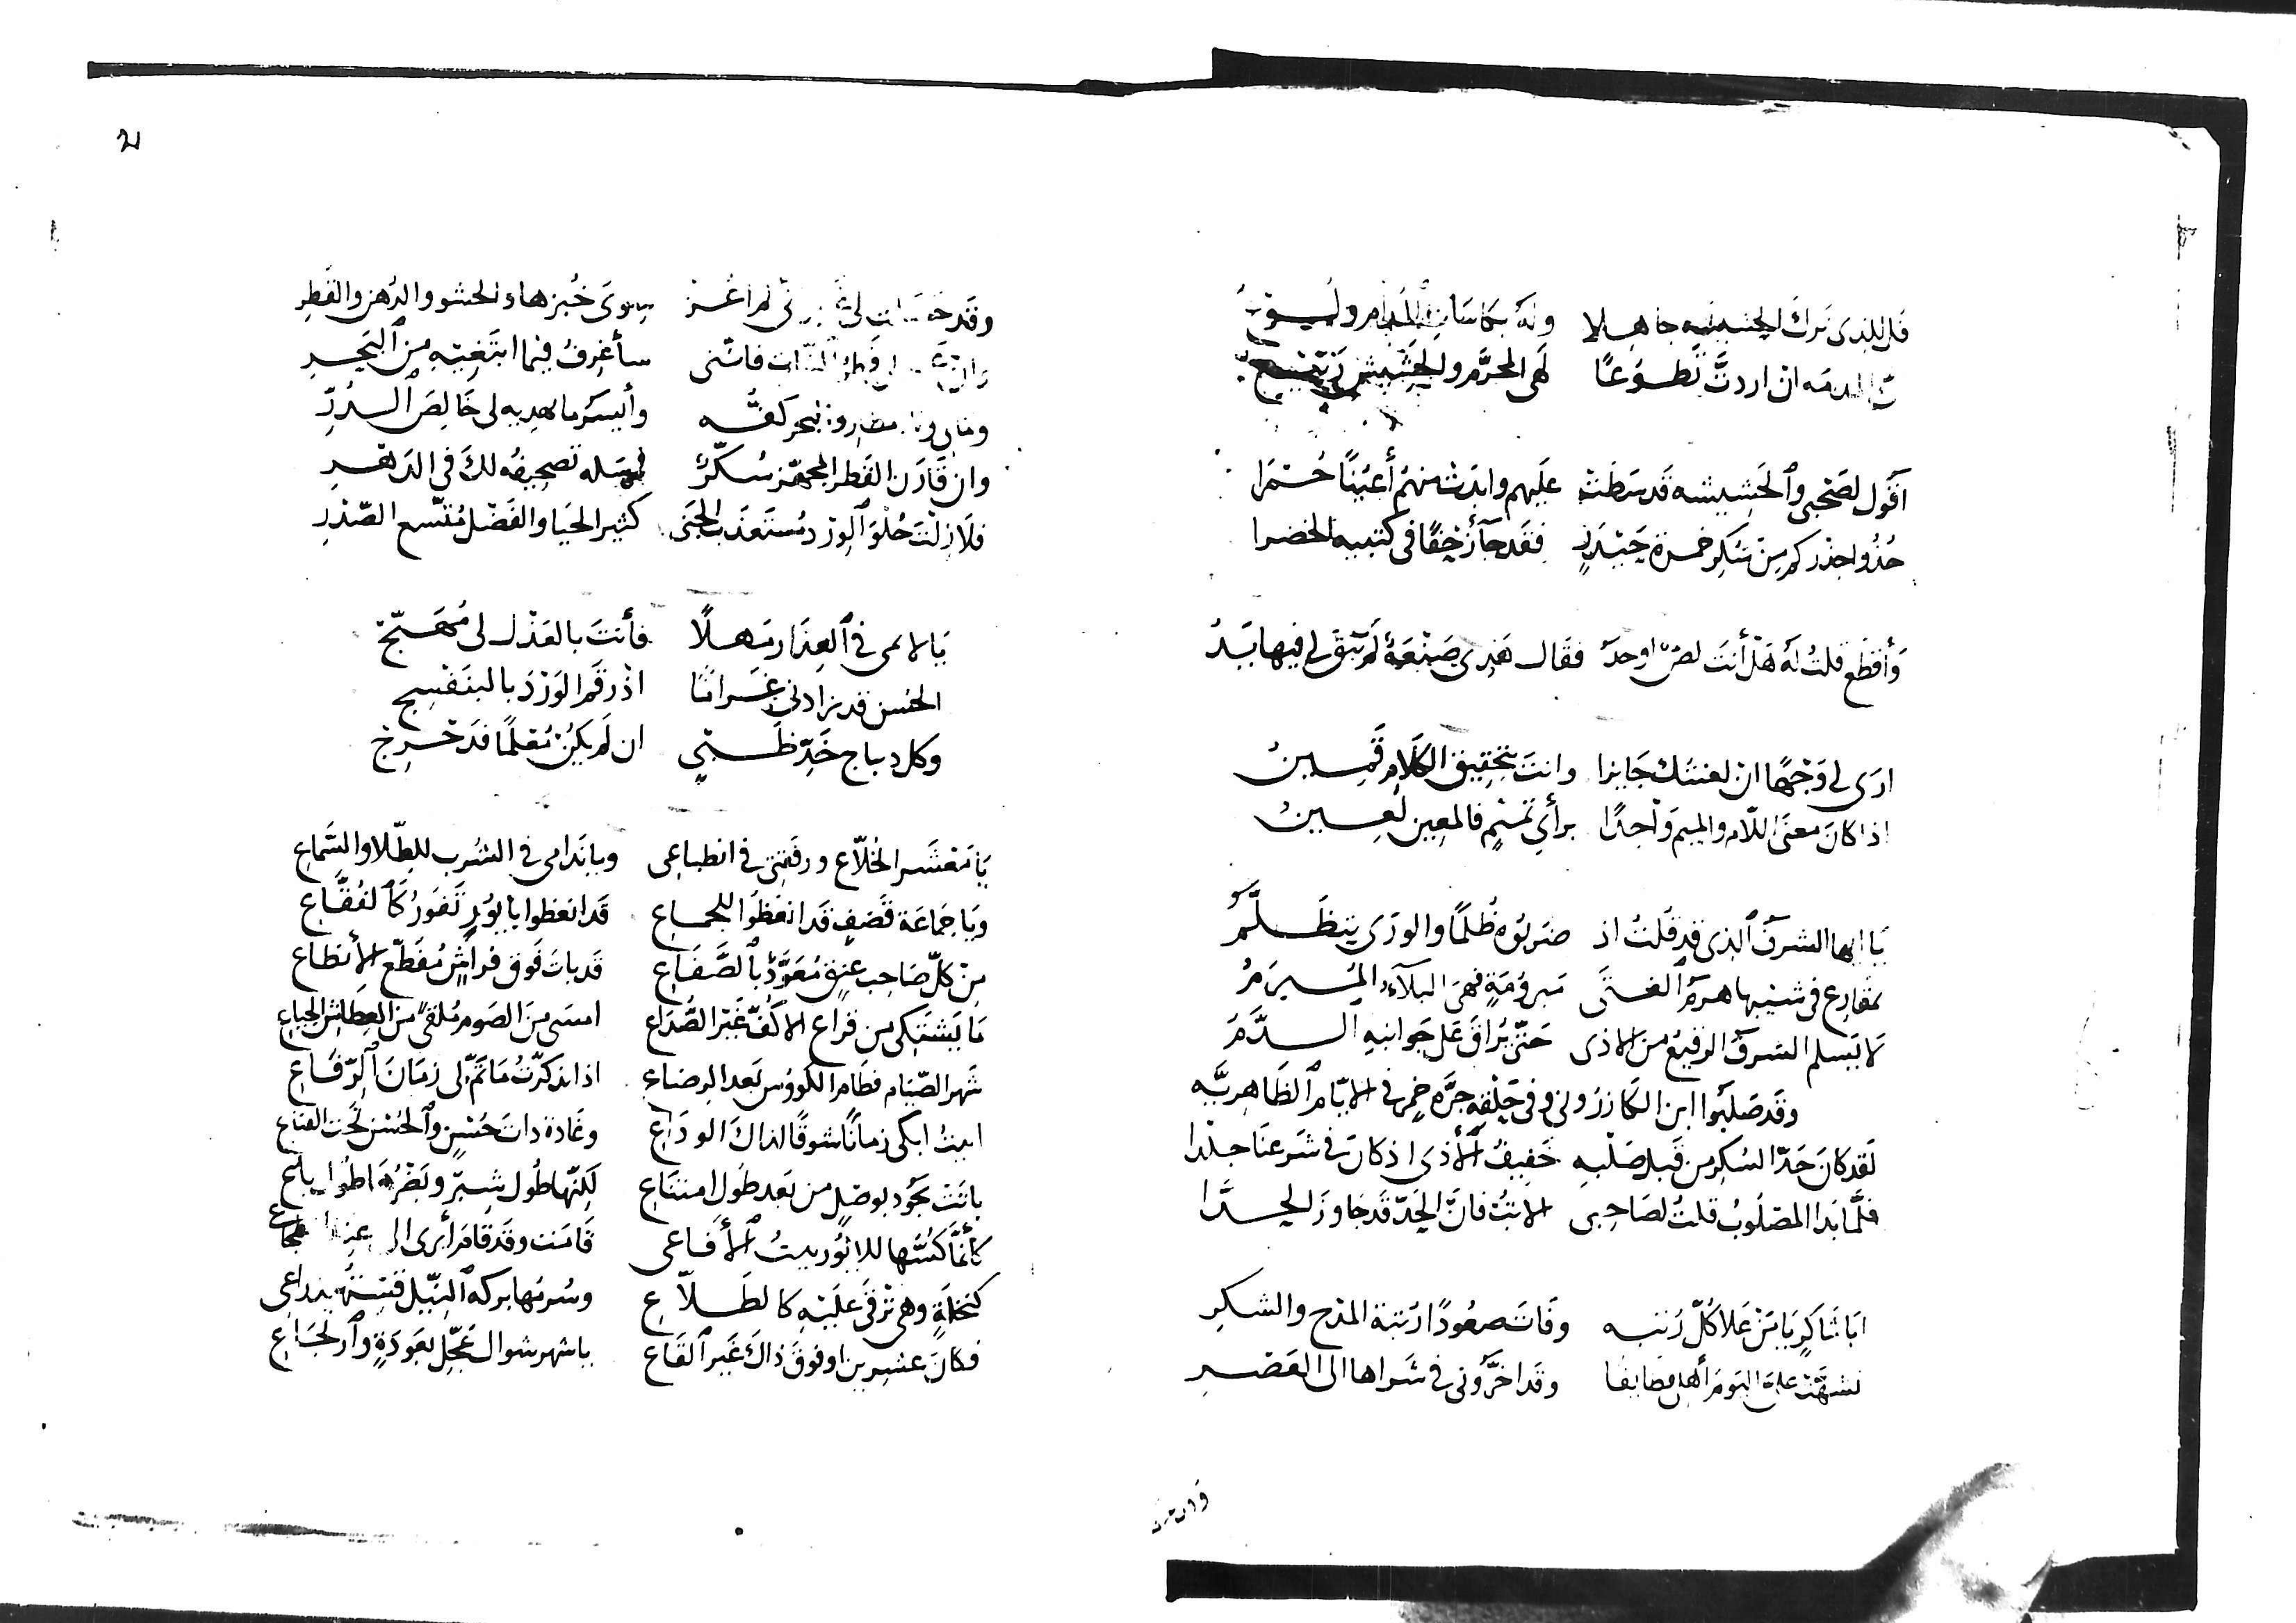 قل للذى ترك الحشيشه جاهلا وله بكاسات المدام ولوع
ان اردت تطوعا فهى المحرم والحشيش ربيع
أقول لصحبى والحشيشه قد سطت عليهم وابدت منهم أعينا حمرا
خذوا حذركم من سكر خمرة حيدر فقد جآز حقا فى كتيبه الخضرا
وأقطع قلت له هل أنت لص اوحد فقال هذى صنعة لم تبق لى فيها يد
ارى لى وجها ان لعنتك جايزا وانت بتحقيق الكلام قمين
اذا كان معنى اللام والميم واحدا برأى تميم فالمعين لعين
يا ايها الشرف الذى قد قلت اذ ضربوه ظلما والورى يتظلم
بمقارع فى شيبها هرم الفتى مبرومة فهى البلآء المبرم
لا يسلم الشرف الرفيع من الاذى حتى يراق على جوانبه الدم
وقد صلبوا ابن الكازرونى وفى حلقه جرة خمر فى الايام الظاهريه
لقد كان حد السكر من قبل صلبه خفيف الأذى اذ كان فى شرعنا جلدا
فلما بدا المصلوب قلت لصاحبى الا تب فان الحد قد جاوز الحدا
ابا شاكر يا من علا كل رتبه وفات صعودا رتبة المدح والشكر
تشهت على اليوم أهلى قطايفا وقد اخرونى فى شراها الى العصر
2
وقد سوى خبزها والحشو والدهن والقطر
فاننى سأغرف فيما ابتغيته من البحر
بحر كفه وأيسر ما يهديه لى خالص الدر
وان قارن القطر المجهز سكر فمسله تصحيفه لك فى الدهر
فلا زلت حلو الورد مستعذب الجنى كثير الحيا والفضل متسع الصدر
يا لائمى فى العذار مهلا فأنت بالعذل لى مهيج
الحسن قد زادنى غراما اذ رقم الورد بالبنفسج
وكل ديباج خد ظبى ان لم يكن معلما فدحرج
يا معشر الخلاع ورفقتى فى انطباعى ويا ندامى فى الشرب للطلا والسماع
ويا جماعة قصف قد انعظوا للجماع قد انعظوا بايور تفور كالفقاع
من كل صاحب عنق معود بالصفاع قد بات فوق فراش مقطع الأنطاع
ما يشتكى من قراع الاكف غير الصداع امسى من الصوم ملقى من العطاش الجياع
شهر الصيام فطام الكووس بعد الرضاع اذا تذكرت ما تم لى زمان الرقاع
ابيت ابكى زمانا شوقا لذاك الوداع وغادة ذات حسن والحسن تحت القناع
باتت تجود بوصل من بعد طول امتناع لكنها طول شبر وبظرها طول باع
كأنما كسها للايور بيت الأفاعى قامت وقد قام أيرى
كنخلة وهى ترقى عليه كالطلاع وسرمها بركه النيل قسته بذراعى
فكان عشرين او فوق ذاك غير القاع يا شهر شوال عجل بعودة وارتجاع